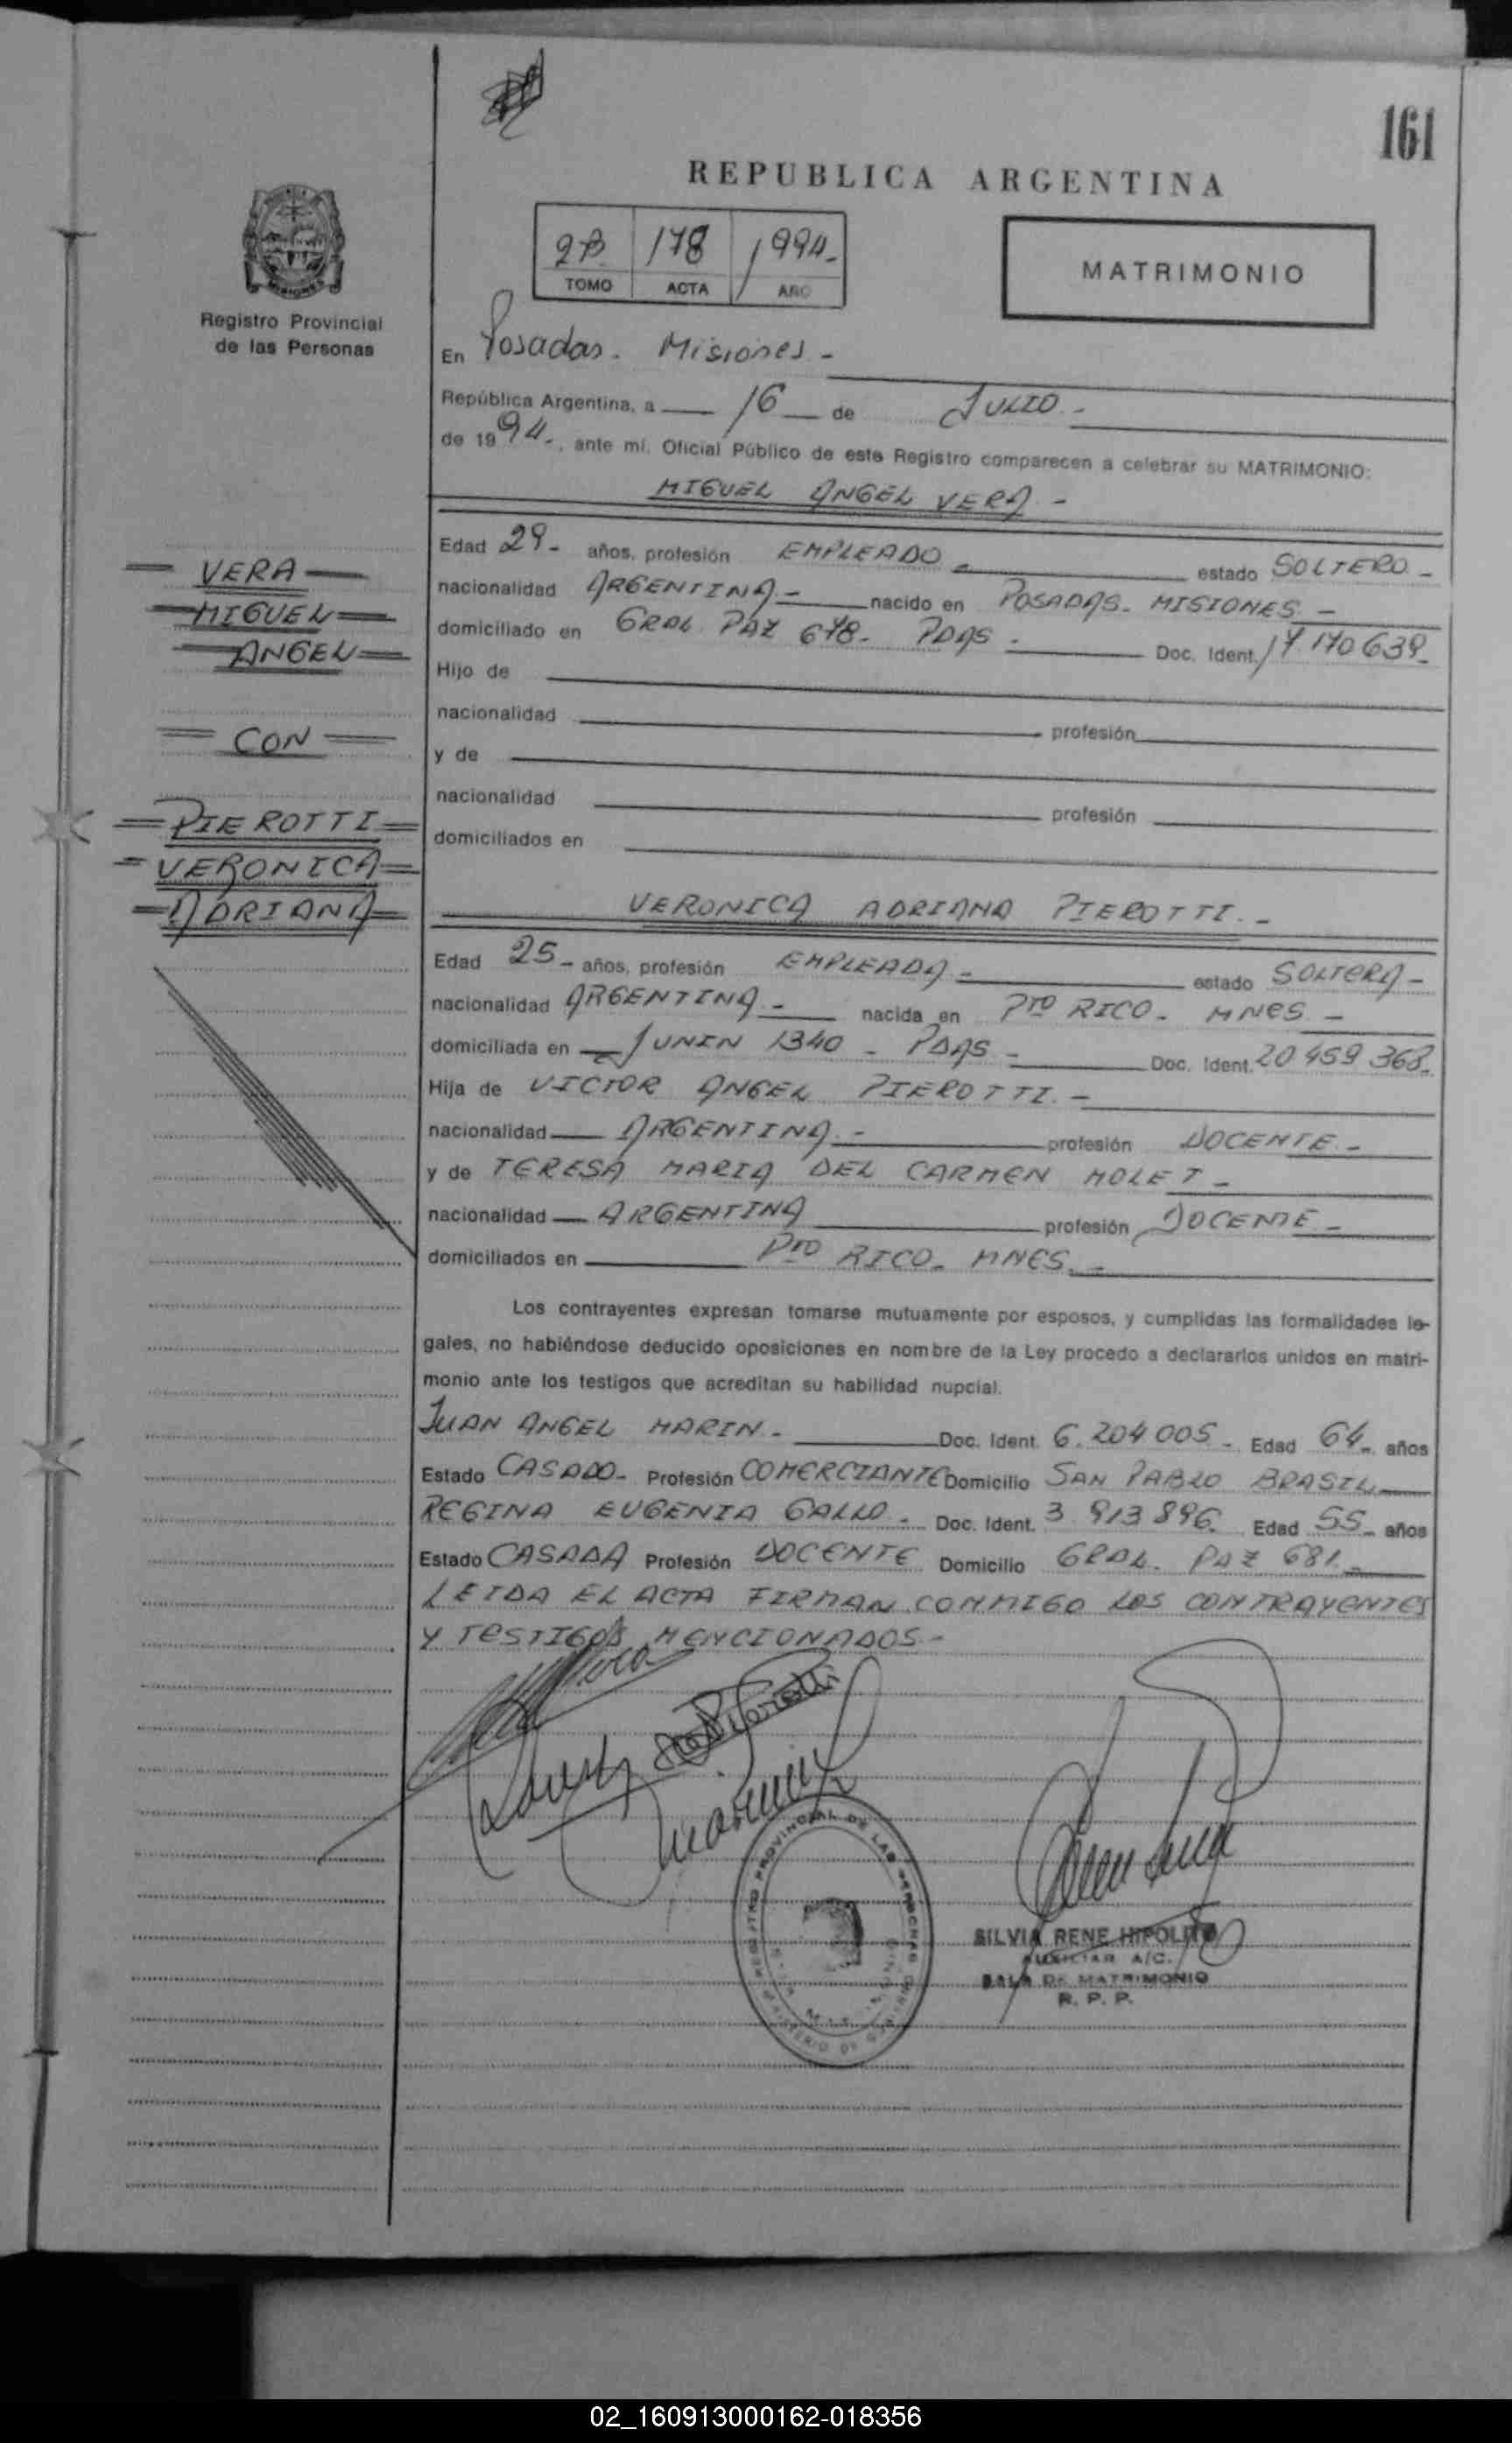 161
REPUBLICA ARGENTINA
2B 178 1994.-
TOMO ACTA AÑO
MATRIMONIO
Registro Provincial
de las Personas
En Posadas - Misiones -
República Argentina, a 16 de JULIO.-
de 1994.-, ante mí, Oficial Público de este Registro comparecen a celebrar su MATRIMONIO:
MIGUEL ANGEL VERA -
Edad 29- años, profesión EMPLEADO - estado SOLTERO -
nacionalidad ARGENTINA - nacido en POSADAS - MISIONES -
domiciliado en GRAL. PAZ 678 - PDAS - Doc. Ident. 17.170 639-
Hijo de
nacionalidad profesión
y de
nacionalidad profesión
domiciliados en
VERA
MIGUEL
ANGEL
CON
PIEROTTI
VERONICA
ADRIANA
VERONICA ADRIANA PIEROTTI.-
Edad 25- años, profesión EMPLEADA - estado SOLTERA -
nacionalidad ARGENTINA - nacida en Pto RICO - MNES -
domiciliada en JUNIN 1340 - PDAS - Doc. Ident. 20 459 368-
Hija de VICTOR ANGEL PIEROTTI.-
nacionalidad ARGENTINA.- profesión DOCENTE.-
y de TERESA MARIA DEL CARMEN MOLET -
nacionalidad ARGENTINA profesión DOCENTE -
domiciliados en Pto RICO - MNES.-
Los contrayentes expresan tomarse mutuamente por esposos, y cumplidas las formalidades le-
gales, no habiéndose deducido oposiciones en nombre de la Ley procedo a declararlos unidos en matri-
monio ante los testigos que acreditan su habilidad nupcial.
JUAN ANGEL MARIN - Doc. Ident. 6.204 005 - Edad 64- años
Estado CASADO - Profesión COMERCIANTE Domicilio SAN PABLO BRASIL
REGINA EUGENIA GALLO - Doc. Ident. 3 913 896. Edad 55- años
Estado CASADA Profesión DOCENTE Domicilio GRAL. PAZ 681.-
LEIDA EL ACTA FIRMAN CONMIGO LOS CONTRAYENTES
Y TESTIGOS MENCIONADOS.-
SILVIA RENE HIPOLITO
AUXILIAR A/C.
SALA DE MATRIMONIO
R. P. P.
02_160913000162-018356